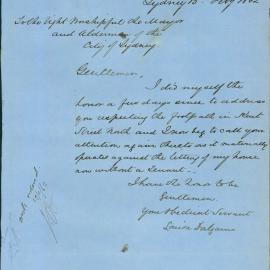 Sydney 13
To the Right Worshipful the Mayor
and Aldermen of the
City of Sydney
Gentlemen,
I did myself the
honor a few days since to address
you respecting the footpath in Kent
Street North and I now beg to call your
attention again thereto as it materially
operates against the letting of my house
now without a tenant.
I have the honor to be
Gentlemen
Your Obedient Servant
Louisa